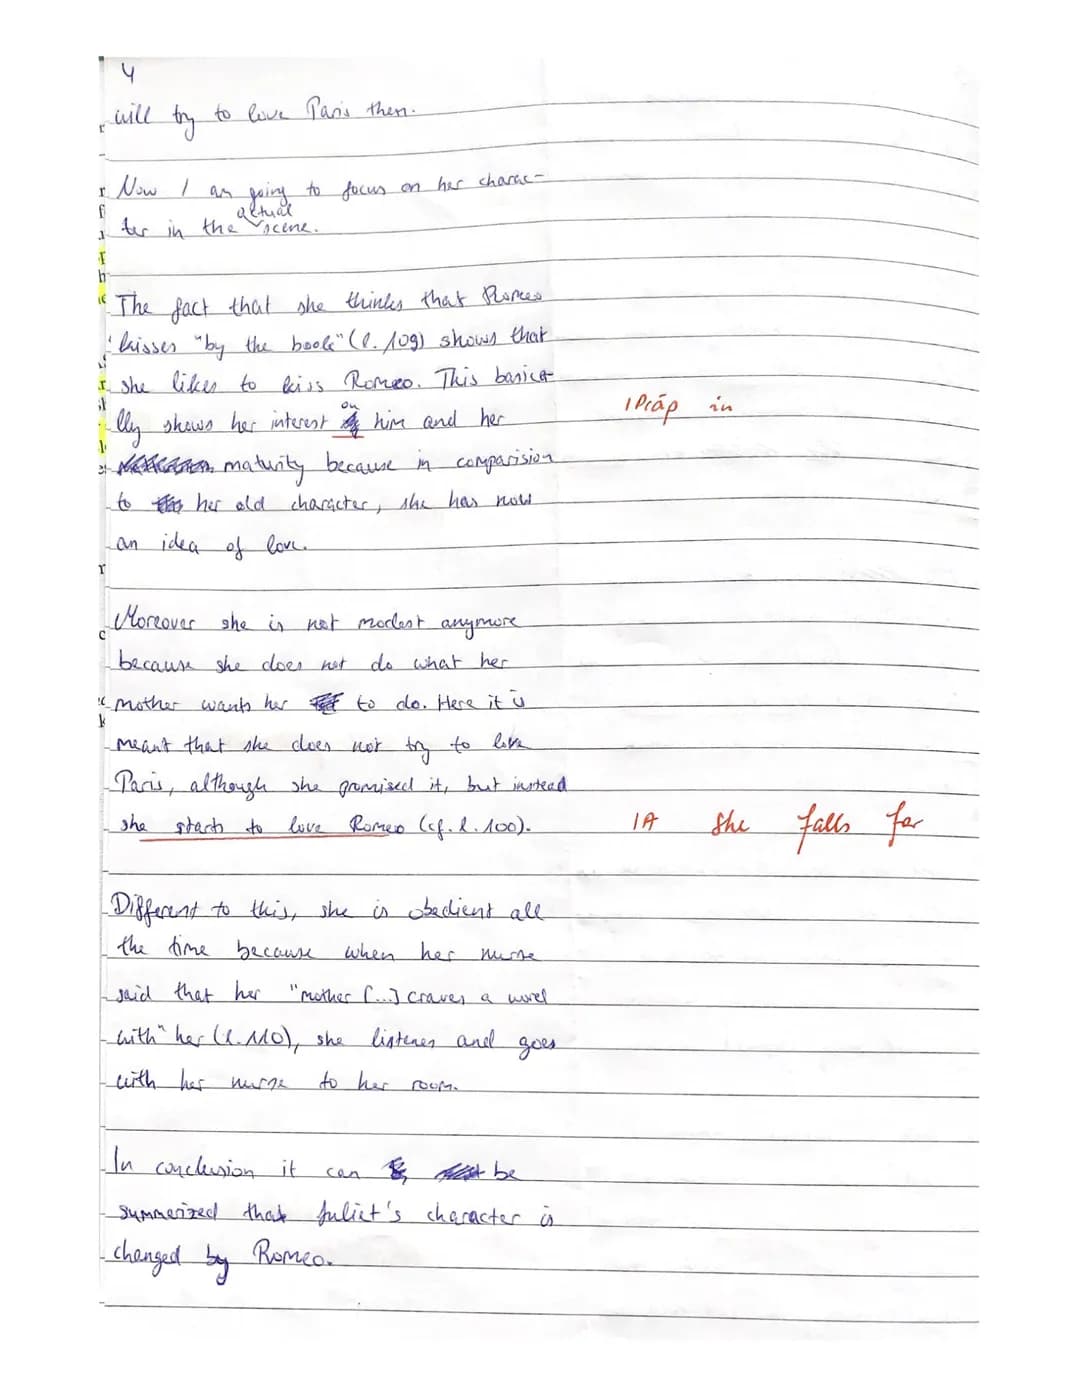 4
will try to love Paris then.
Now I am going to focus on her charac-
actual
ter in the scene.
The fact that she thinks that Romeo
kisses "by the book" (l. 109) shows that
she likes to kiss Romeo. This basica-
on
lly shows her interest him and her
1 Präp in
maturity because in comparision
to her old character, she has now
an idea of love.
Moreover she is not modest anymore
because she does not do what her
mother wants her to do. Here it is
meant that she does not try to love
Paris, although she promised it, but instead
she starts to love Romeo (cf. l. 100).
1A she falls for
Different to this, she is obedient all
the time because when her nurse
said that her "mother [...] craves a word
with" her (l. 110), she listenes and goes
with her nurse to her room.
In conclusion it can be
summerized that Juliet's character is
changed by Romeo.